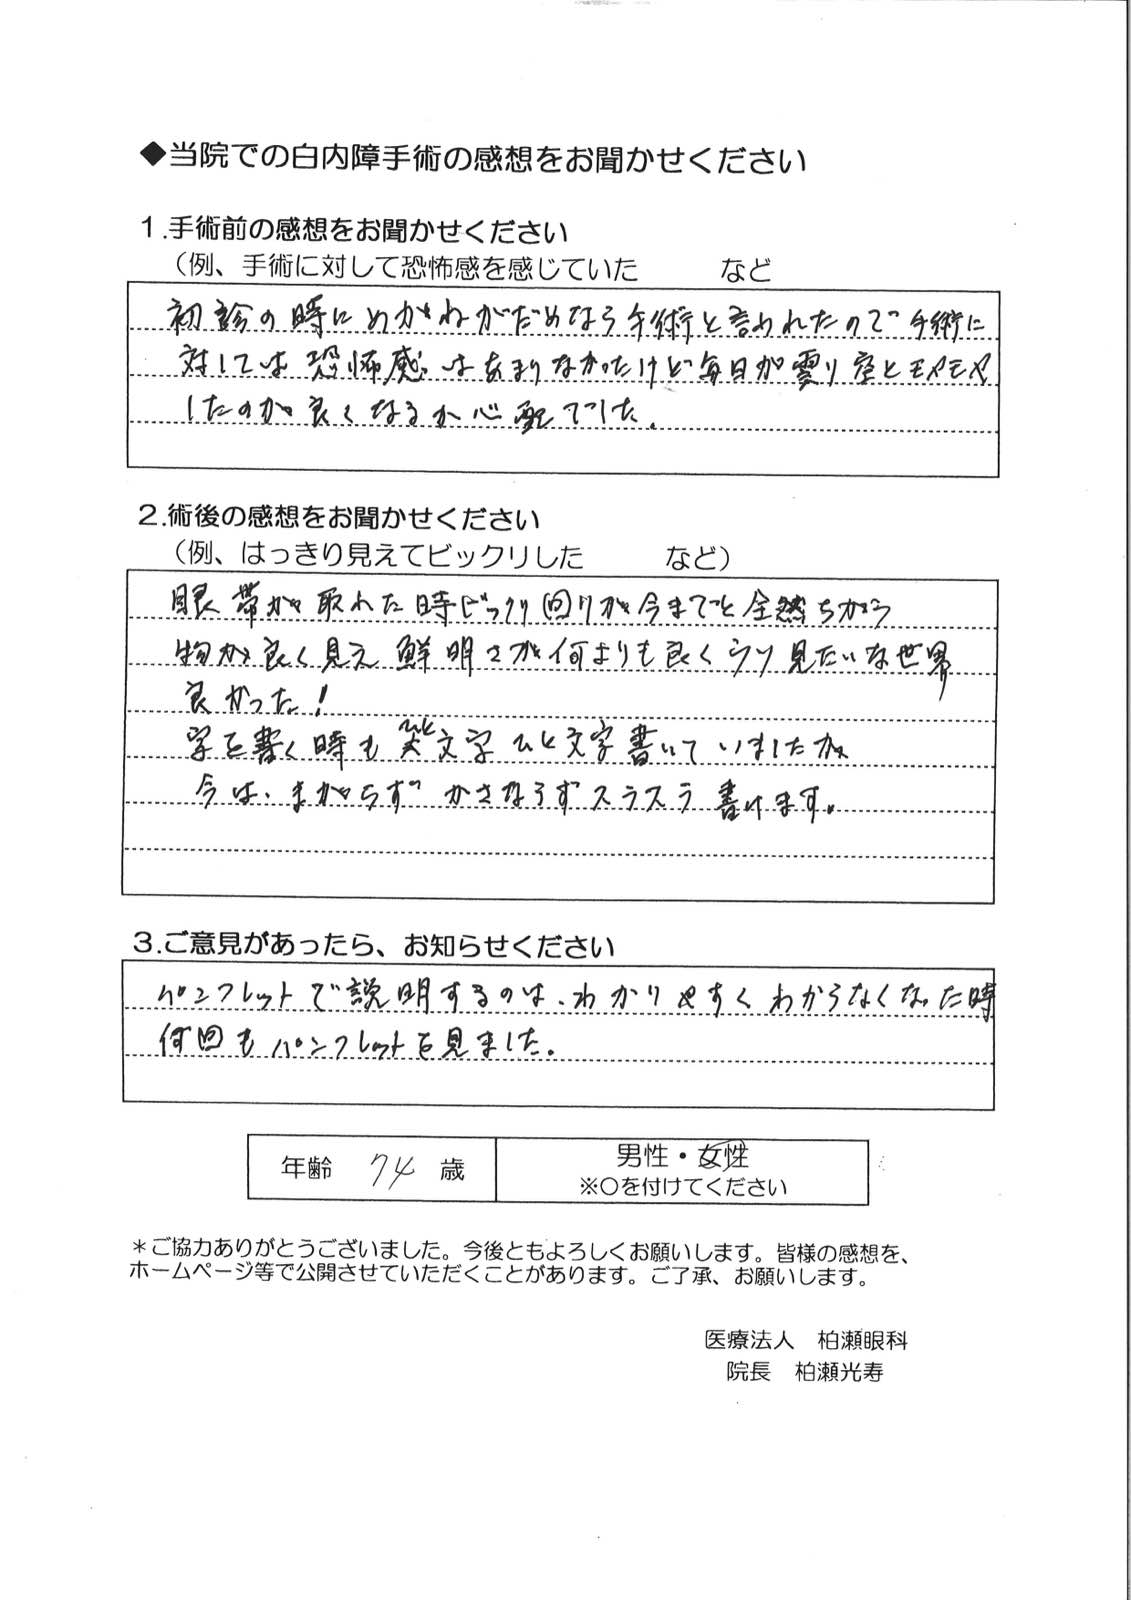 ◆当院での白内障手術の感想をお聞かせください
1.手術前の感想をお聞かせください
（例、手術に対して恐怖感を感じていた　　　など
初診の時にめがねがだめなら手術と言われたので手術に
対しては恐怖感はあまりなかったけど毎日が曇り空とモヤモヤ
したのが良くなるか心配でした。
2.術後の感想をお聞かせください
（例、はっきり見えてビックリした　　　など）
眼帯が取れた時びっくり回りが今までと全然ちがう
物が良く見え鮮明さが何よりも良く 見たいな世界
良かった！
字を書く時もひと文字ひと文字書いていましたが
今は、まがらずかさならずスラスラ書けます。
3.ご意見があったら、お知らせください
パンフレットで説明するのは、わかりやすくわからなくなった時
何回もパンフレットを見ました。
年齢　74　歳　男性・女性
※〇を付けてください
＊ご協力ありがとうございました。今後ともよろしくお願いします。皆様の感想を、
ホームページ等で公開させていただくことがあります。ご了承、お願いします。
医療法人　柏瀬眼科
院長　柏瀬光寿